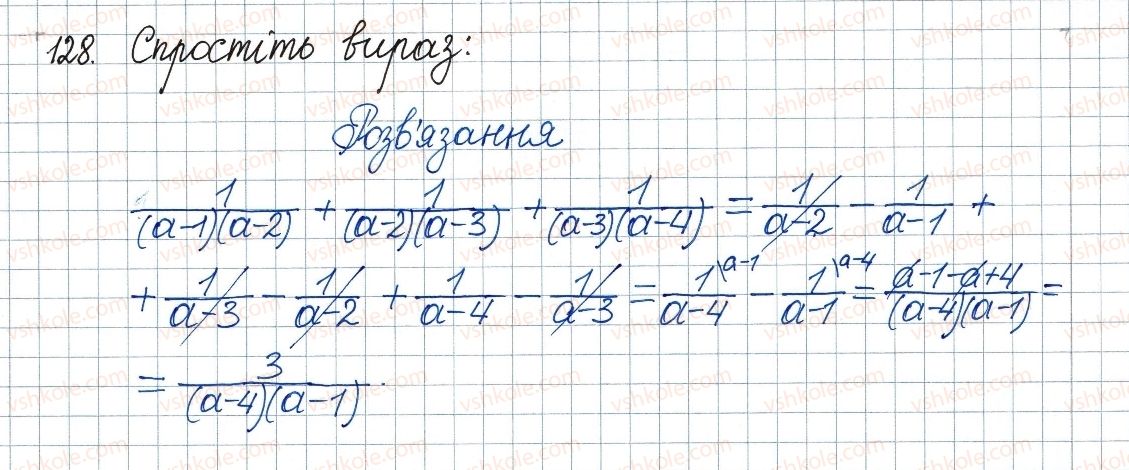 128. Спростіть вираз:
Розв'язання
1/((a-1)(a-2)) + 1/((a-2)(a-3)) + 1/((a-3)(a-4)) = 1/(a-2) - 1/(a-1) +
+ 1/(a-3) - 1/(a-2) + 1/(a-4) - 1/(a-3) = 1\a-1/(a-4) - 1\a-4/(a-1) = (a-1-a+4)/((a-4)(a-1)) =
= 3/((a-4)(a-1)).
vshkole.com